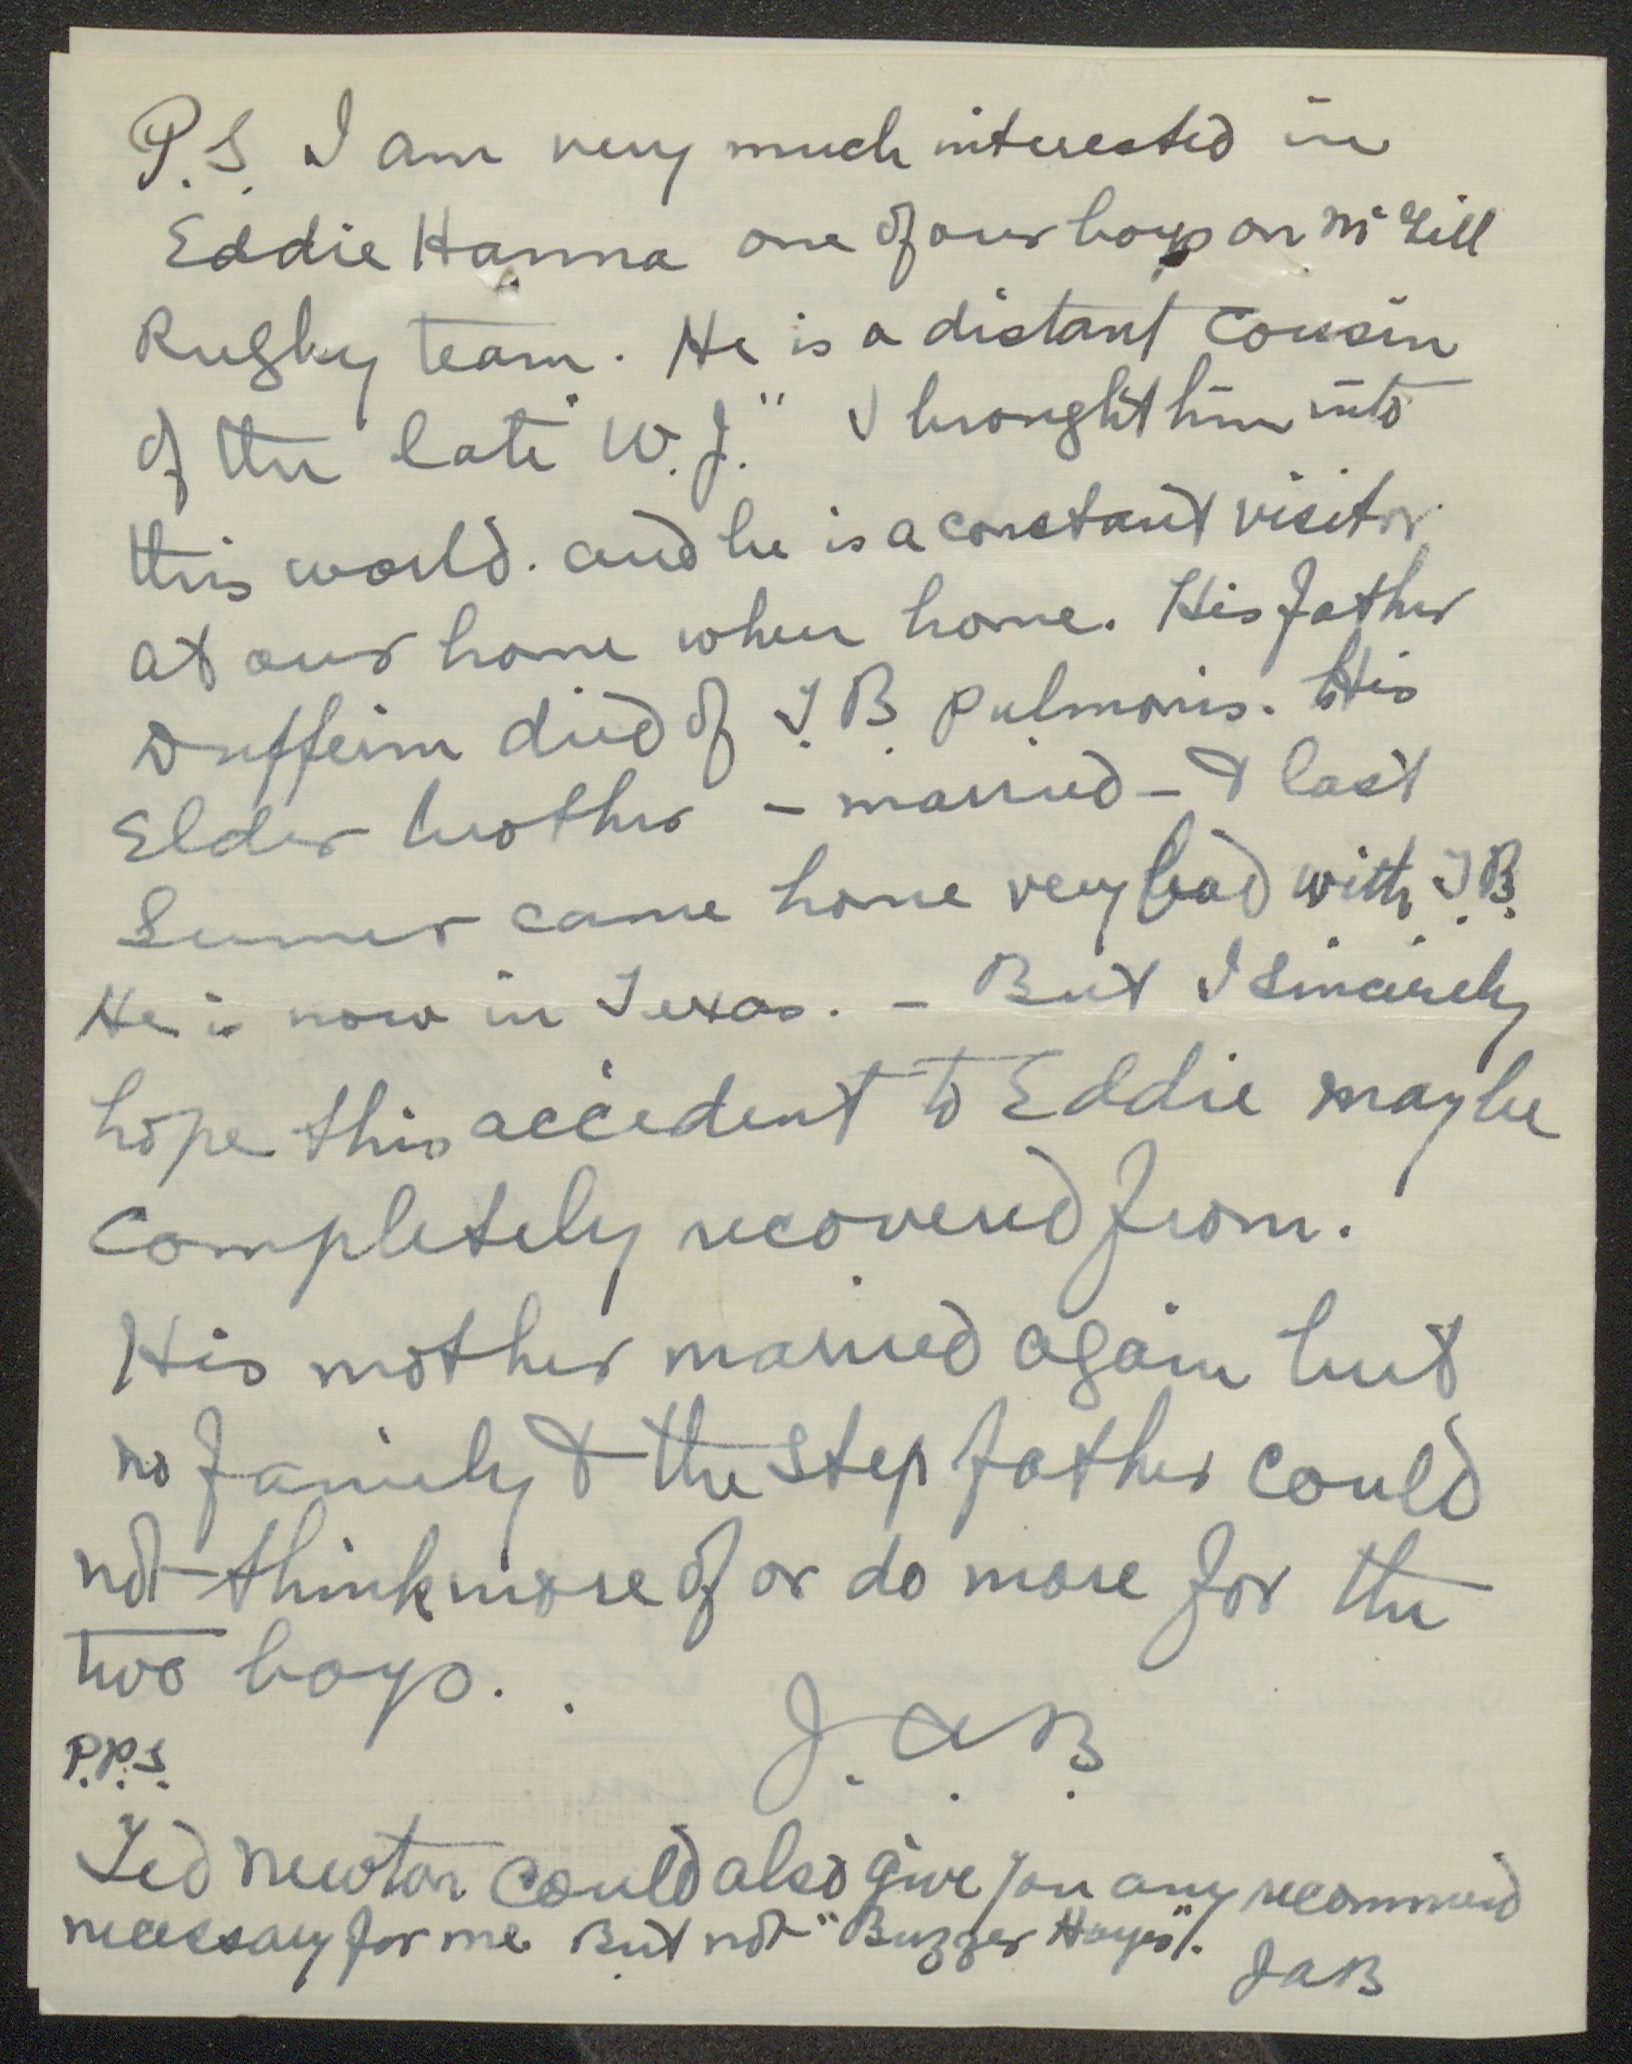 P.S. I am very much interested in
Eddie Hanna one of our boys on McGill
Rugby team. He is a distant cousin
of the late "W.J." I brought him into
this world. and he is a constant visitor
at our home when home. His father
Dufferin died of T.B. pulmonis. His
Elder brother - married - & last
Summer came home very bad with T.B.
He is now in Texas. - But I sincerely
hope this accident to Eddie may be
completely recovered from.
His mother married again but
no family & the step father could
not think more of or do more for the
two boys.
J.A.B.
P.P.S.
Ted Newton could also give you any recommend
necessary for me But not "Buzzer Hayes".
JAB